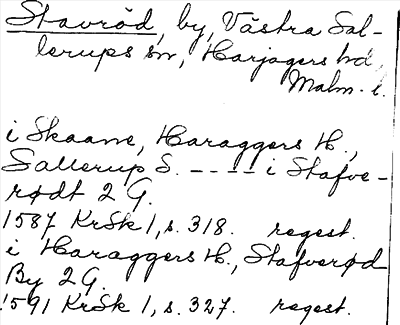 Stavröd, by, Västra Sal-
lerups sn, Harjagers hd,
Malm. l.
i Skaane, Haraggers H.,
Sallerup S. ---- i Stafve-
rødt 2 G.
1587 KrSk 1, s. 318. regest.
i Haraggers H., Stafverød
By 2 G.
1591 KrSk 1, s. 327. regest.